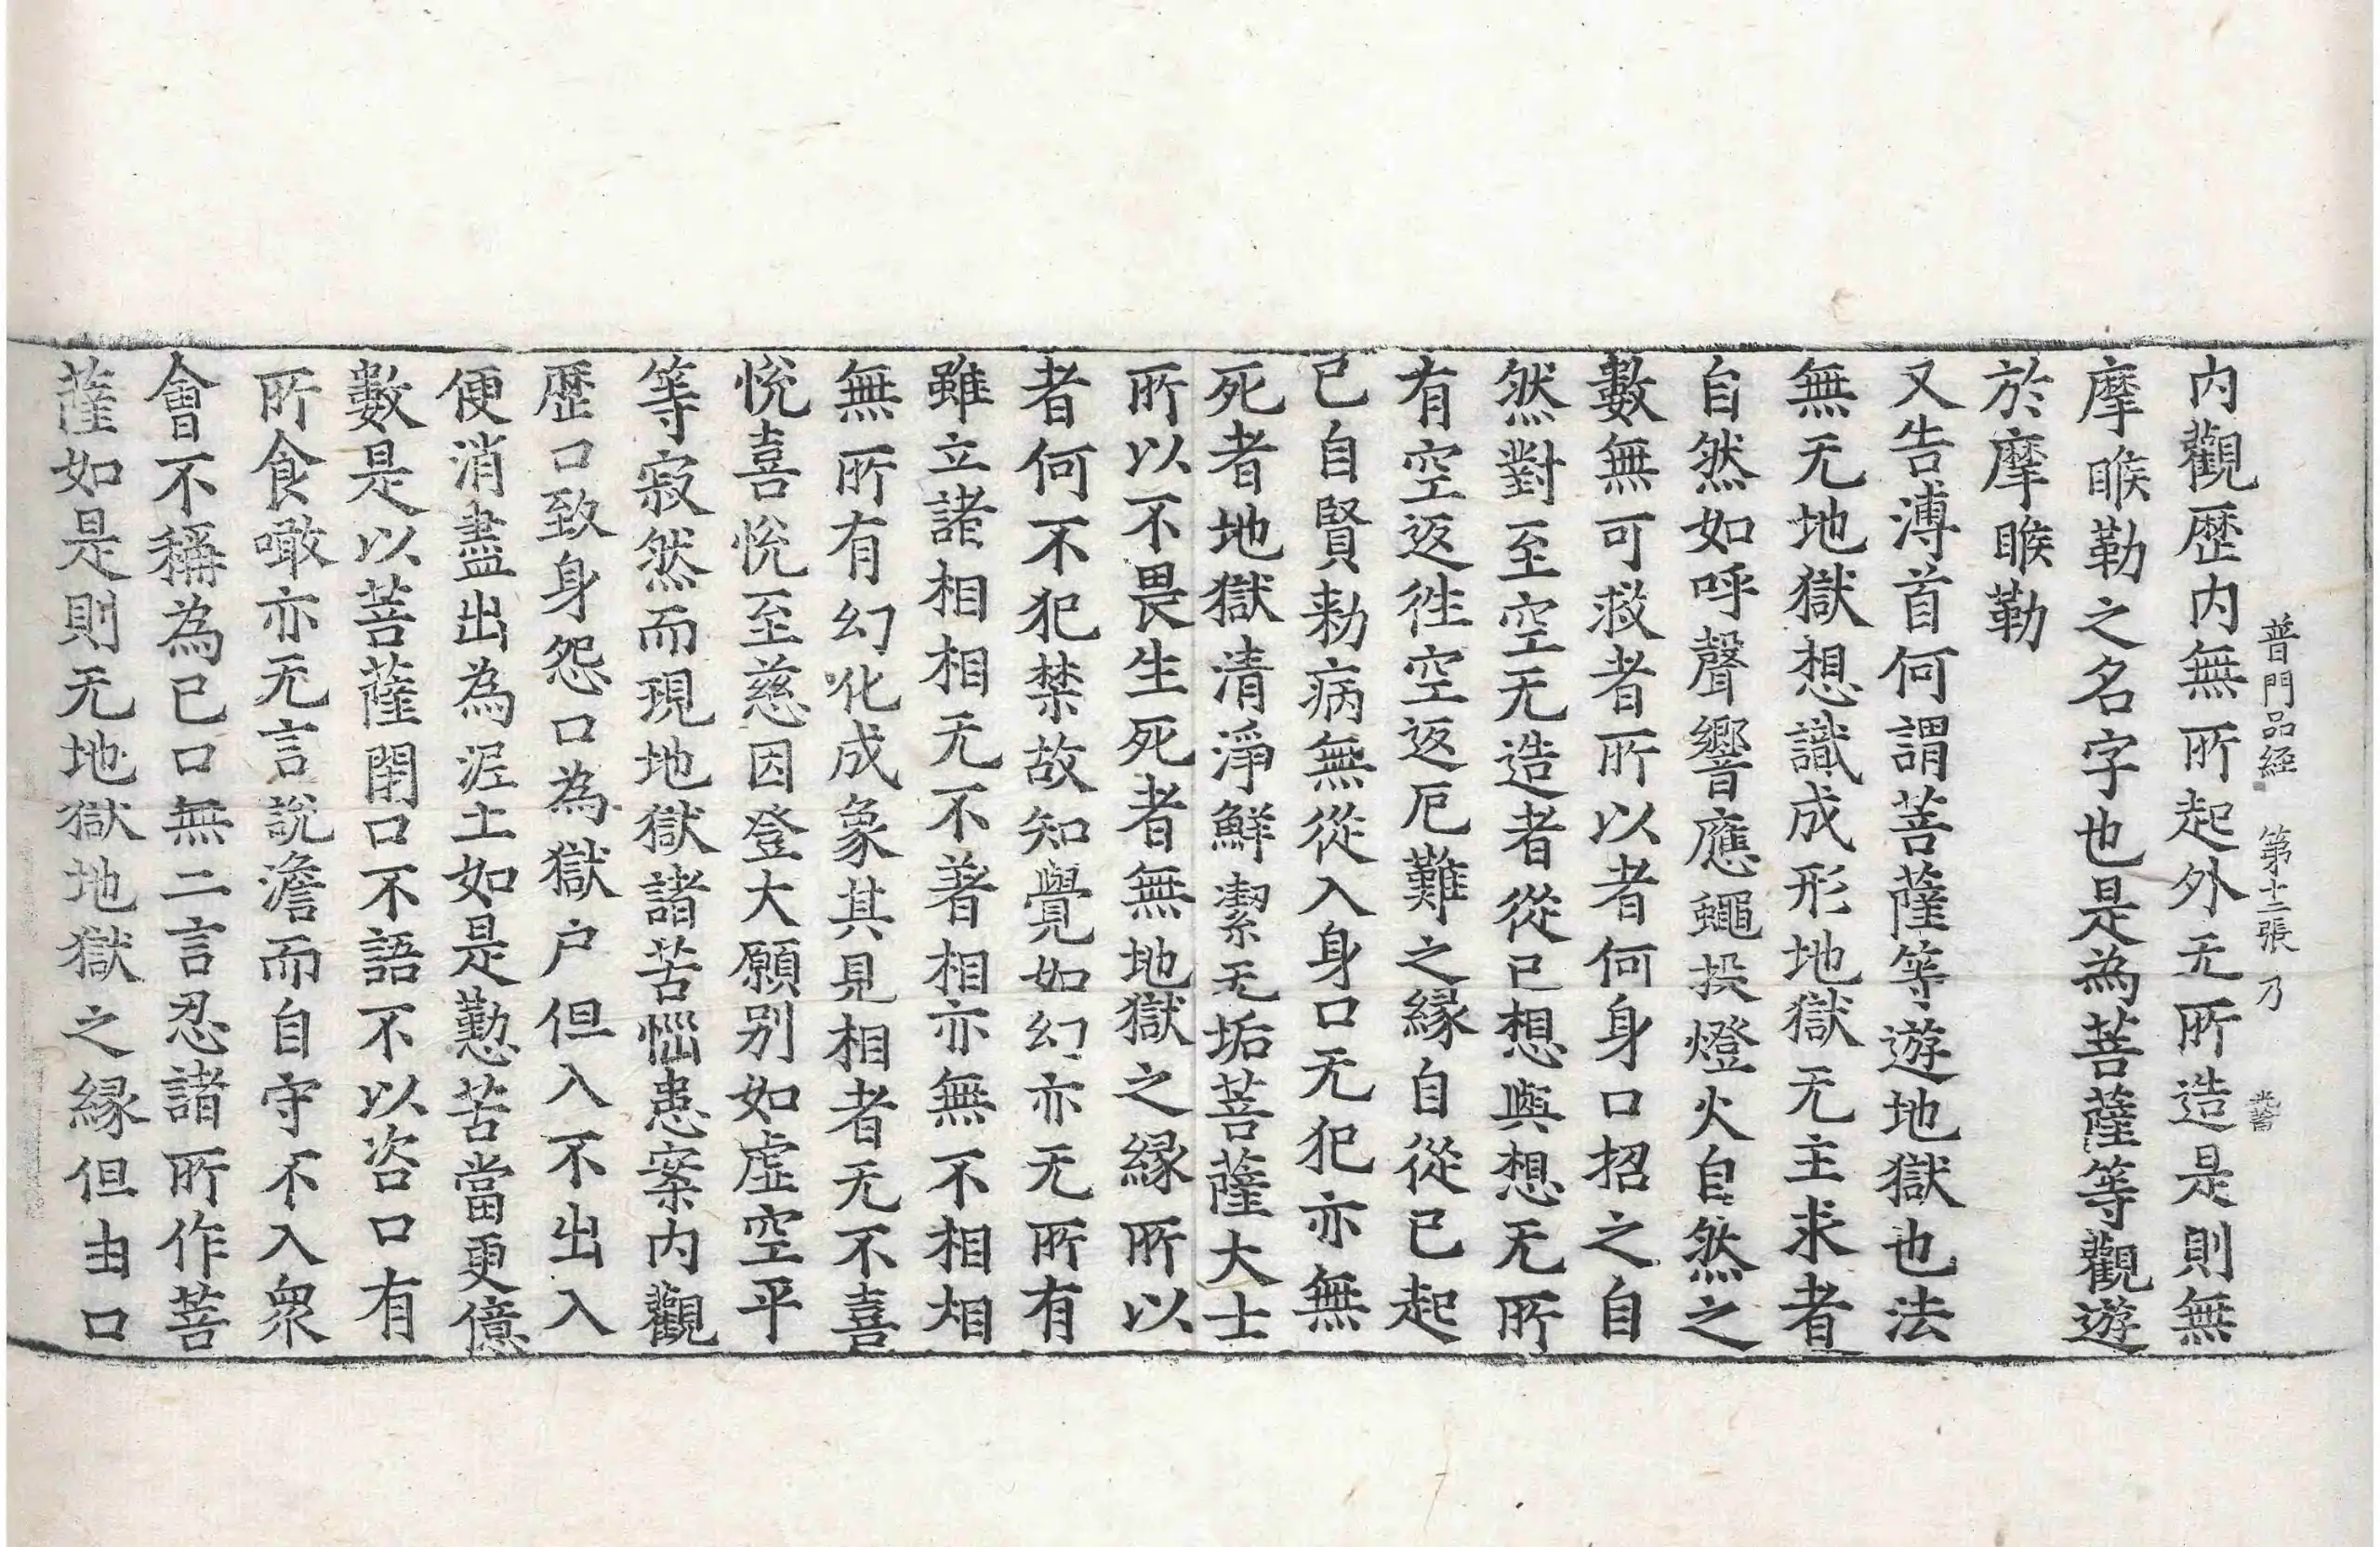 普門品經 第十二張 乃
内觀歷内無所起外无所造是則無
摩睺勒之名字也是為菩薩等觀遊
於摩睺勒
又告溥首何謂菩薩等遊地獄也法
無无地獄想識成形地獄无主求者
自然如呼聲響應蠅投燈火自然之
數無可救者所以者何身口招之自
然對至空无造者從已想與想无所
有空返徃空返厄難之縁自從已起
已自賢勑病無從入身口无犯亦無
死者地獄清淨鮮潔无垢菩薩大士
所以不畏生死者無地獄之縁所以
者何不犯禁故知覺如幻亦无所有
雖立諸相相无不著相亦無不相相
無所有幻化成象其見相者无不喜
悅喜悅至慈因登大願别如虛空平
等寂然而現地獄諸苦惱患案内觀
歷口致身怨口為獄户但入不出入
便消盡出為泥土如是懃苦當更億
數是以菩薩閉口不語不以咨口有
所食噉亦无言說澹而自守不入衆
會不稱為已口無二言忍諸所作菩
薩如是則无地獄地獄之縁但由口